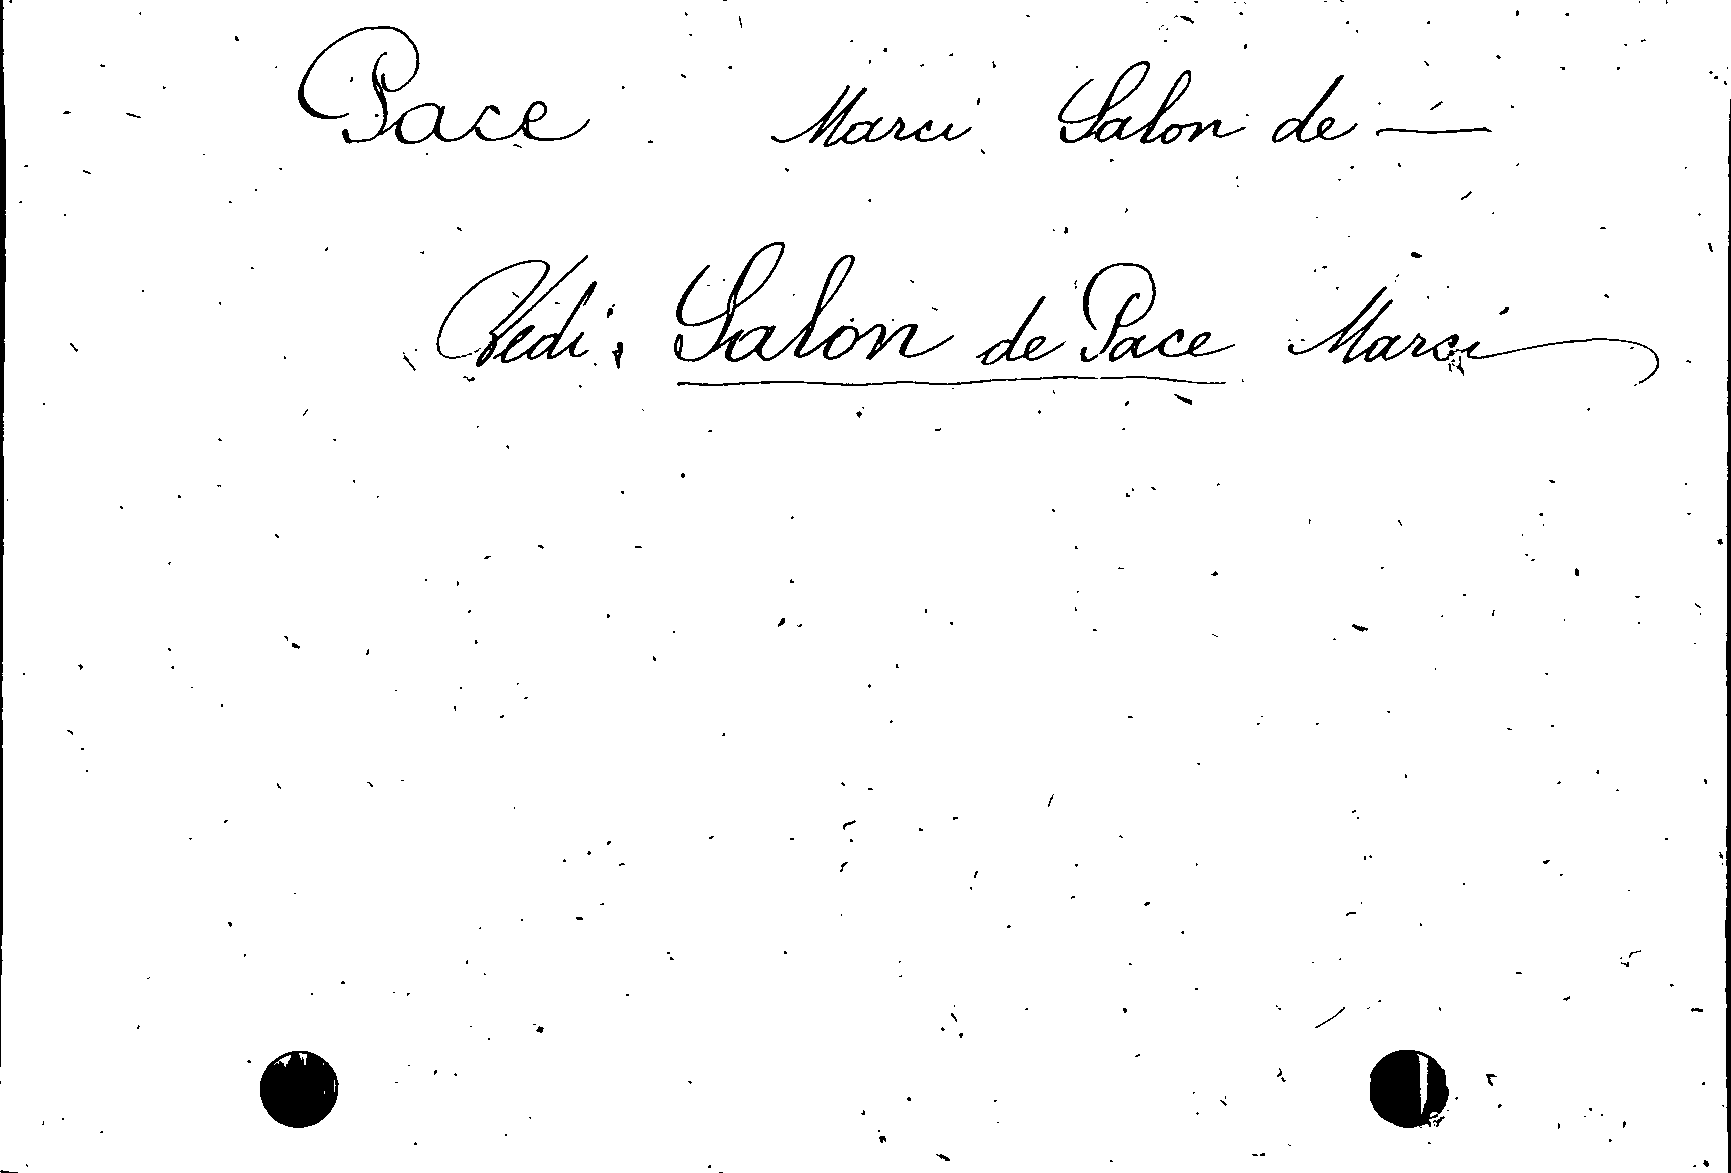 Pace Marci Salon de —
Vedi: Salon de Pace Marci